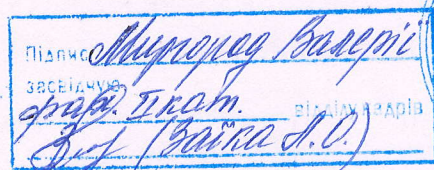 Підпис Миргород Валерії
засвідчую
фах. І кат. відділу кадрів
(Заїка Л.О.)